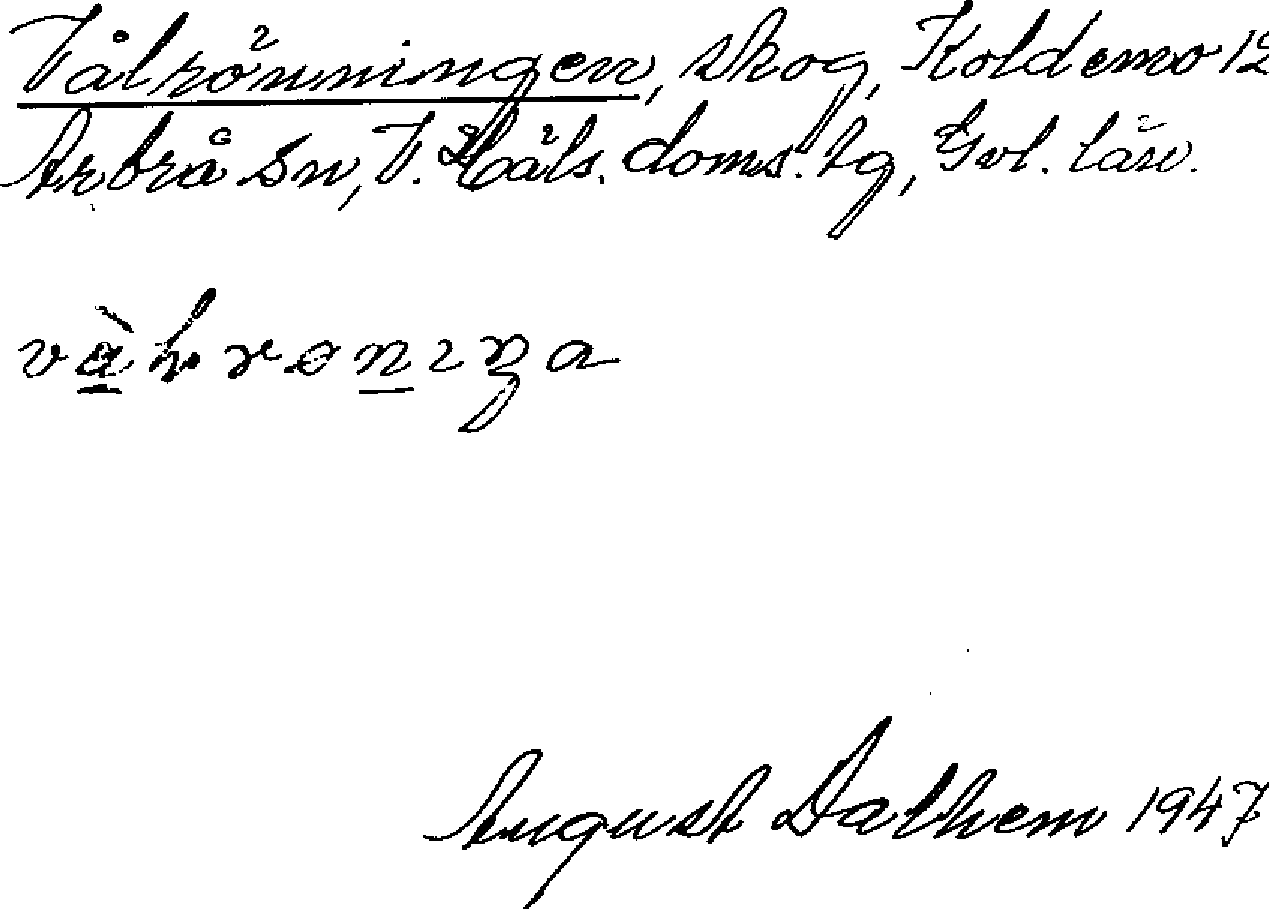 Vålrönningen, skog, Koldemo 12
Arbrå sn, V. Häls. doms. tg, Gvl. län.
August Dalhem 1947